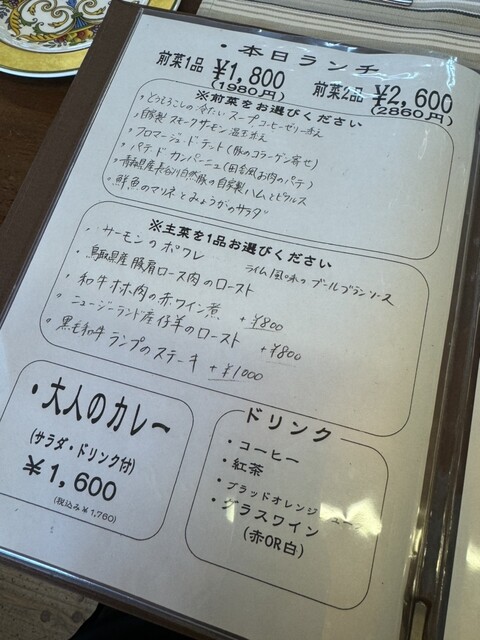 ・本日ランチ
前菜1品 ¥1,800 前菜2品 ¥2,600
(1980円) (2860円)
※前菜をお選びください
・とうもろこしの冷たいスープ コーヒーゼリー添え
・自家製スモークサーモン 温玉添え
・フロマージュ・ド・テット(豚のコラーゲン寄せ)
・パテ ド カンパーニュ(田舎風お肉のパテ)
・青森県産長谷川自然豚の自家製ハムとピクルス
・鮮魚のマリネとみょうがのサラダ
※主菜を1品お選びください
・サーモンのポワレ ライム風味のブールブランソース
・鳥取県産豚肩ロース肉のロースト
・和牛ホホ肉の赤ワイン煮 +¥800
・ニュージーランド産仔羊のロースト +¥800
・黒毛和牛ランプのステーキ +¥1000
・大人のカレー
(サラダ・ドリンク付)
¥1,600
(税込み¥1,760)
ドリンク
・コーヒー
・紅茶
・ブラッドオレンジジュース
・グラスワイン
(赤OR白)